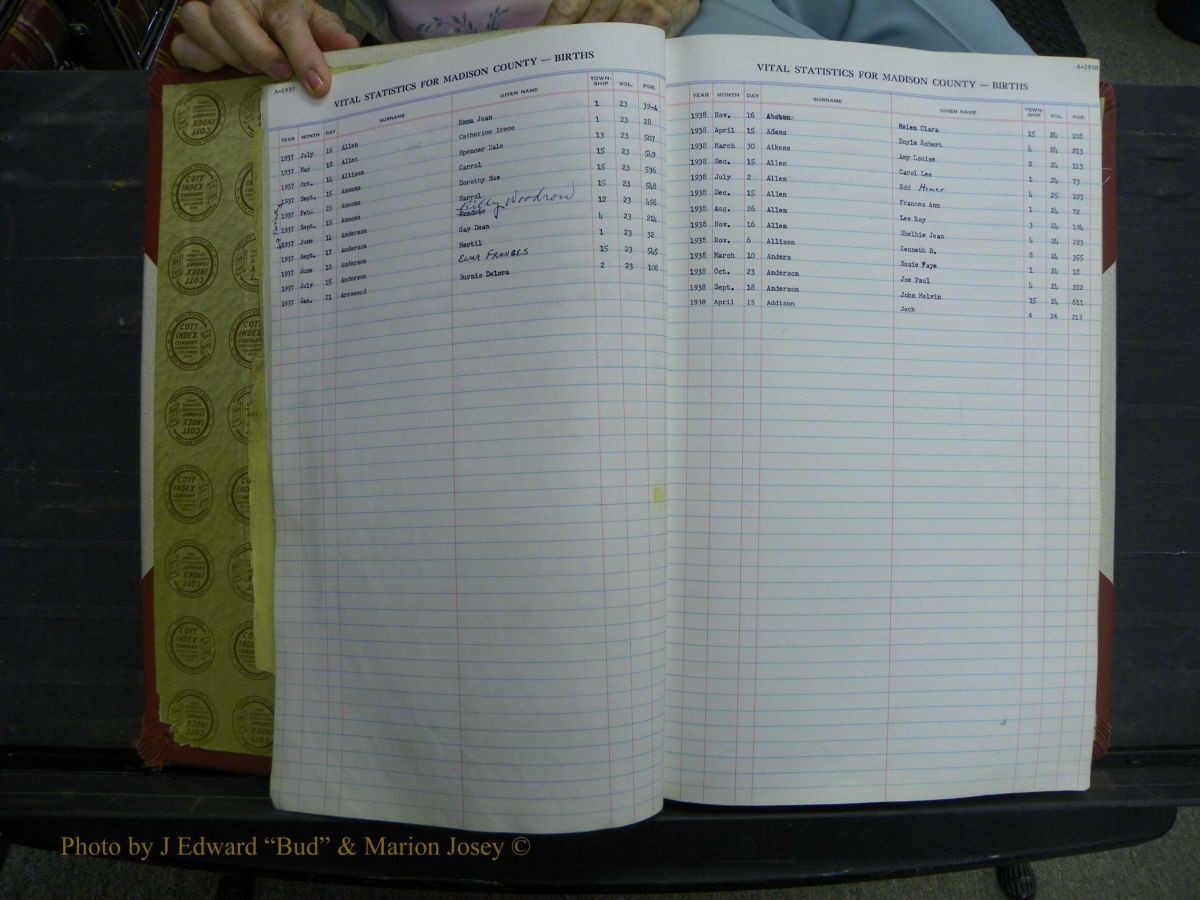 A-1937
VITAL STATISTICS FOR MADISON COUNTY — BIRTHS
YEAR MONTH DAY SURNAME GIVEN NAME TOWN-SHIP VOL. PGE.
1937 July 16 Allen Emma Jean 1 23 39-A
1937 May 18 Allen Catherine Irene 1 23 28
1937 Oct. 14 Allison Spencer Dale 13 23 507
1937 Sept. 15 Ammons Carrol 15 23 549
1937 Feb. 23 Ammons Dorothy Sue 15 23 536
1937 Sept. 15 Ammons Harrol 15 23 548
1937 June 14 Anderson Billy Woodrow 12 23 456
1937 Sept. 17 Anderson Gay Dean 4 23 214
1937 June 10 Anderson Mertil 1 23 32
1937 July 15 Anderson ELMA FRANCES 15 23 545
1937 Jan. 21 Arrowood Burnis Delora 2 23 108
A-1938
VITAL STATISTICS FOR MADISON COUNTY — BIRTHS
YEAR MONTH DAY SURNAME GIVEN NAME TOWN-SHIP VOL. PGE.
1938 Nov. 16 Abston Helen Clara 15 24 108
1938 April 15 Adams Doyle Robert 4 24 213
1938 March 30 Aikens Amy Louise 2 24 113
1938 Dec. 15 Allen Carol Lee 1 24 73
1938 July 2 Allen Edd Homer 4 25 193
1938 Dec. 15 Allen Frances Ann 1 24 72
1938 Aug. 26 Allen Lee Roy 3 24 194
1938 Nov. 16 Allen Shelbie Jean 4 24 223
1938 Nov. 6 Allison Kenneth B. 8 24 355
1938 March 10 Anders Susie Faye 1 24 18
1938 Oct. 23 Anderson Joe Paul 4 24 222
1938 Sept. 18 Anderson John Melvin 15 24 611
1938 April 15 Addison Jack 4 24 213
COTT INDEX COMPANY
Photo by J Edward “Bud” & Marion Josey ©